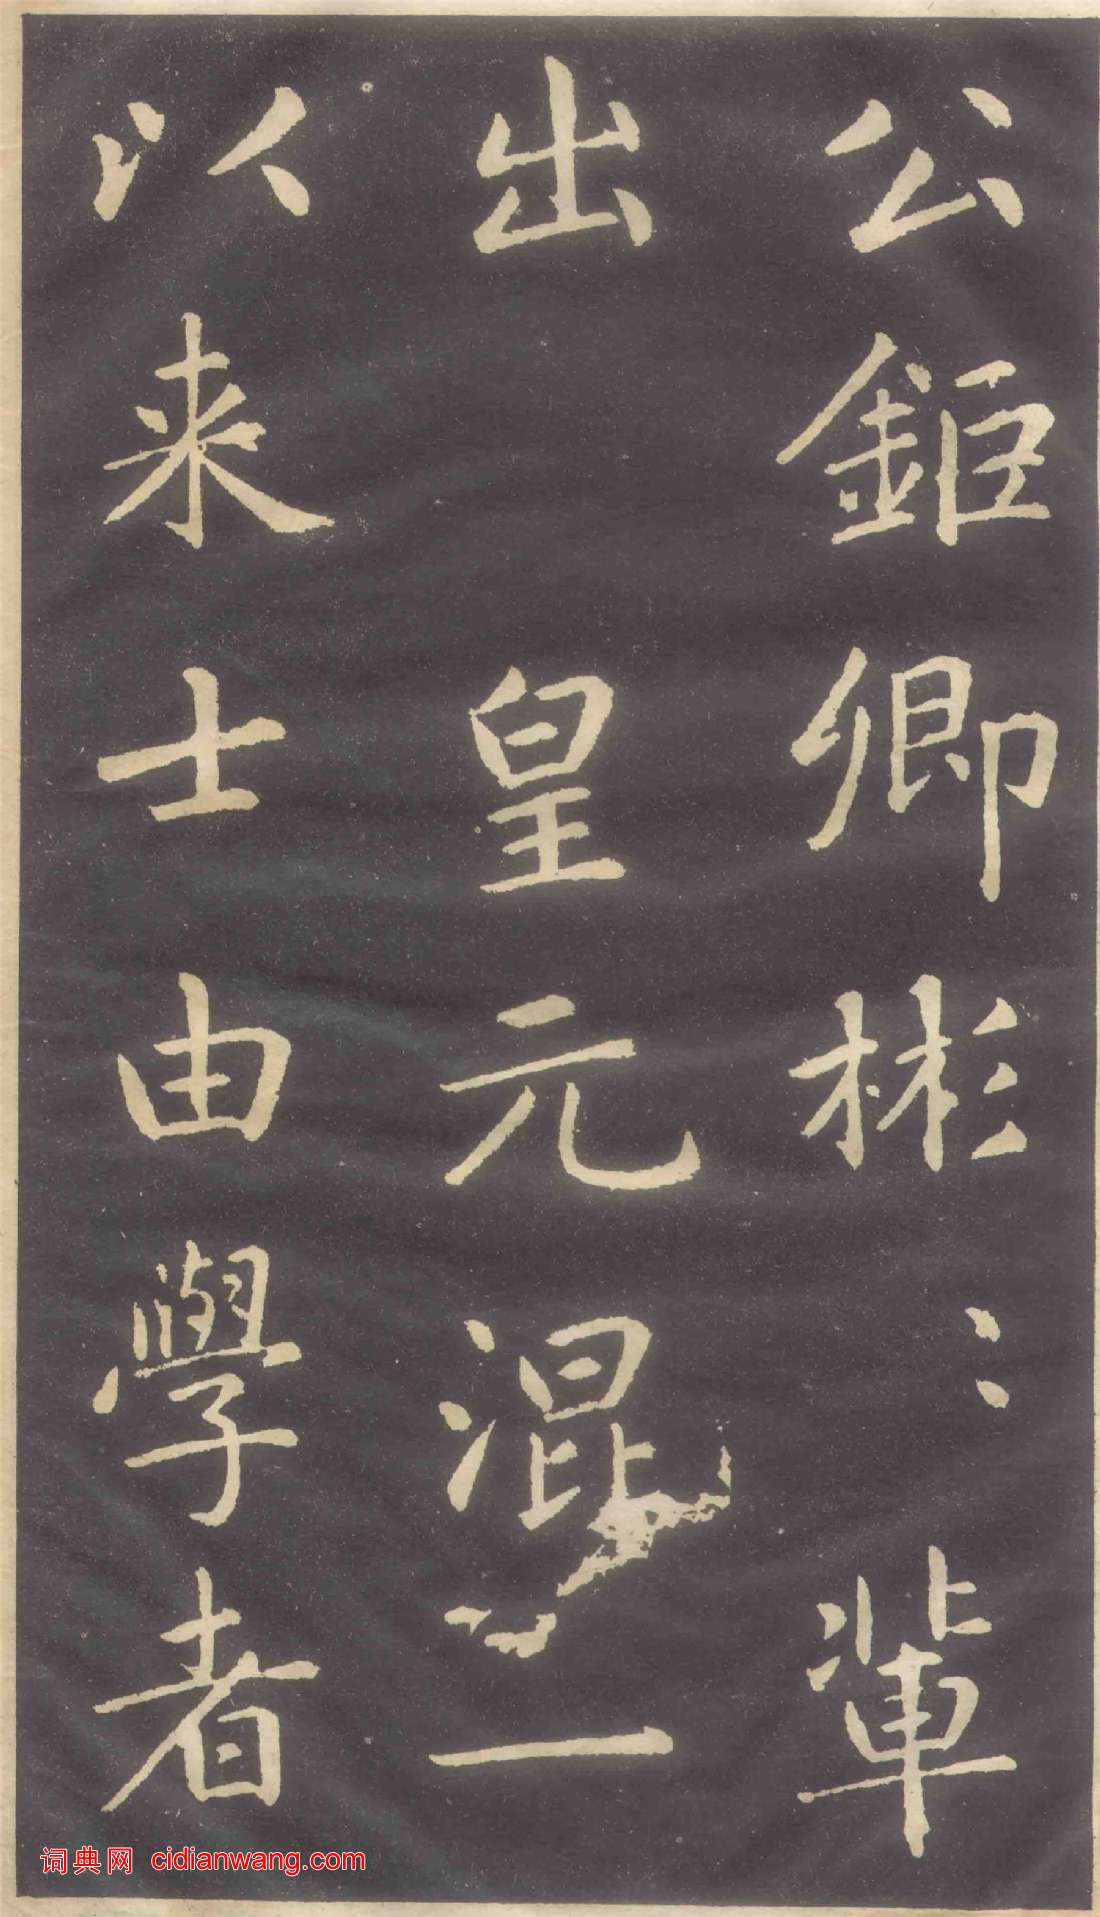 公鉅卿彬〻輩
出皇元混一
以来士由學者
词典网 cidianwang.com